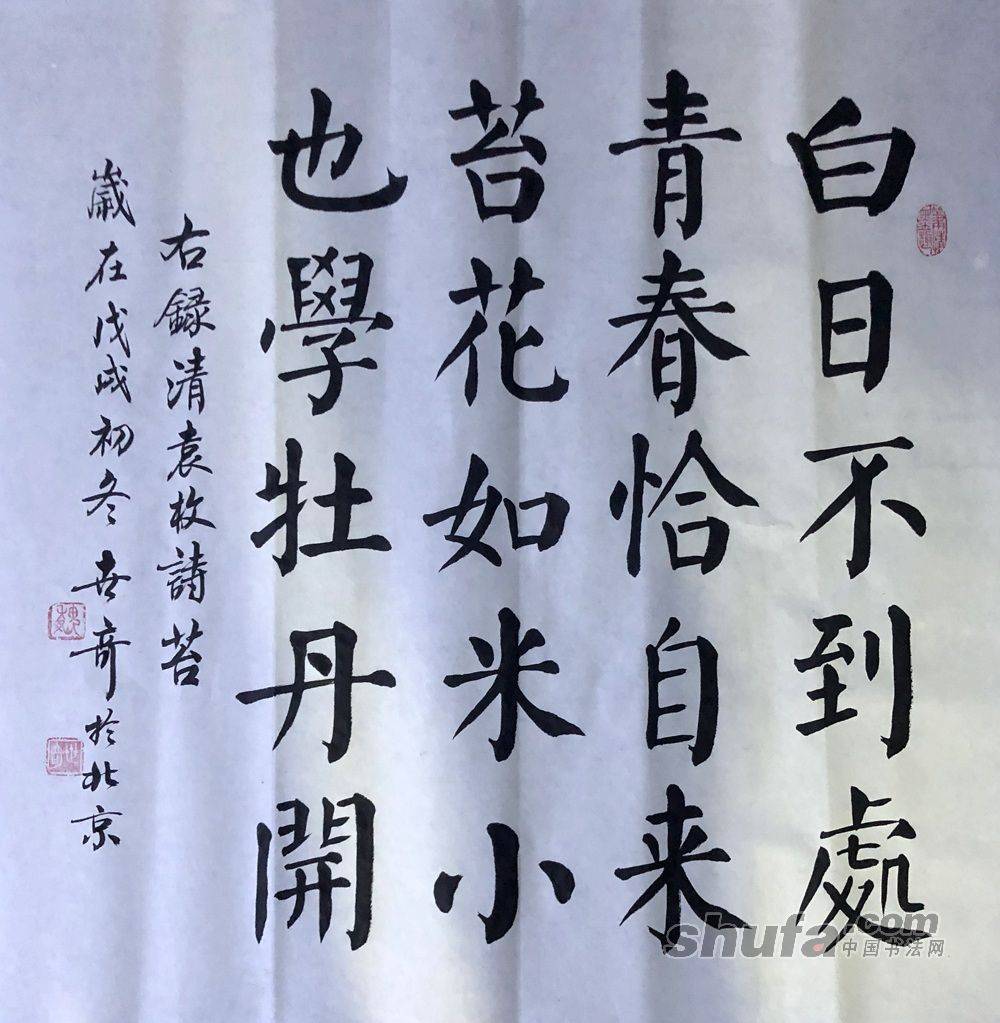 白日不到處
青春恰自来
苔花如米小
也學牡丹開
右録清袁枚詩苔
歲在戊戌初冬世奇於北京
魏
shufa.com
中国书法网